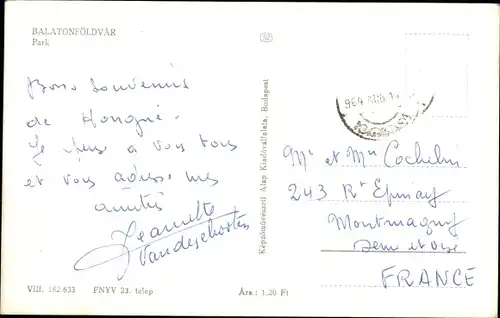 BALATONFÖLDVÁR
Park
Bons Souvenirs
de Hongrie
Je pense à vous tous
et vous adresse mes
amitiés
Jeannette
Képzőművészeti Alap Kiadóvállalata, Budapest
964
Mr et Mme Cochelin
243 Rt Epinay
Montmagny
Seine et Oise
FRANCE
VIII. 182-633 FNYV 23. telep Ára : 1,20 Ft